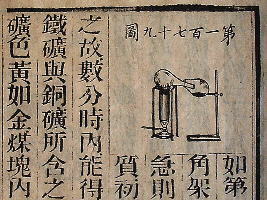 圖九十七百一第
如第
角架
急則
質初
之故數分時內能得
鐵礦與銅礦所含之
礦色黃如金煤塊內